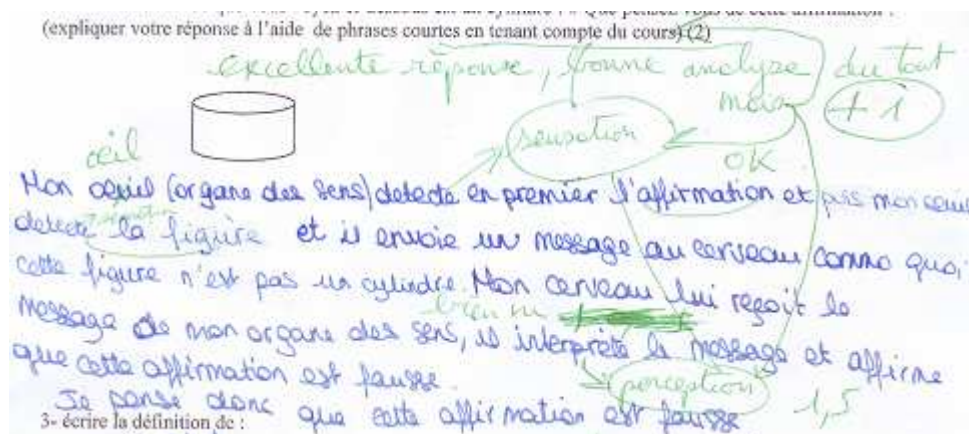 (expliquer votre réponse à l'aide de phrases courtes en tenant compte du cours) (2)
excellente réponse, bonne analyse du tout
mais +1
sensation
œil OK
Mon oeuiel (organe des sens) detecte en premier l'affirmation et puis mon
detecte la figure et il envoie un message au cerveau comme quoi
cette figure n'est pas un cylindre. Mon cerveau lui reçoit le
bien vu
message de mon organe des sens, il interprète le message et affirme
que cette affirmation est fausse.
perception 1,5
Je pense donc que cette affirmation est fausse
3- écrire la définition de :